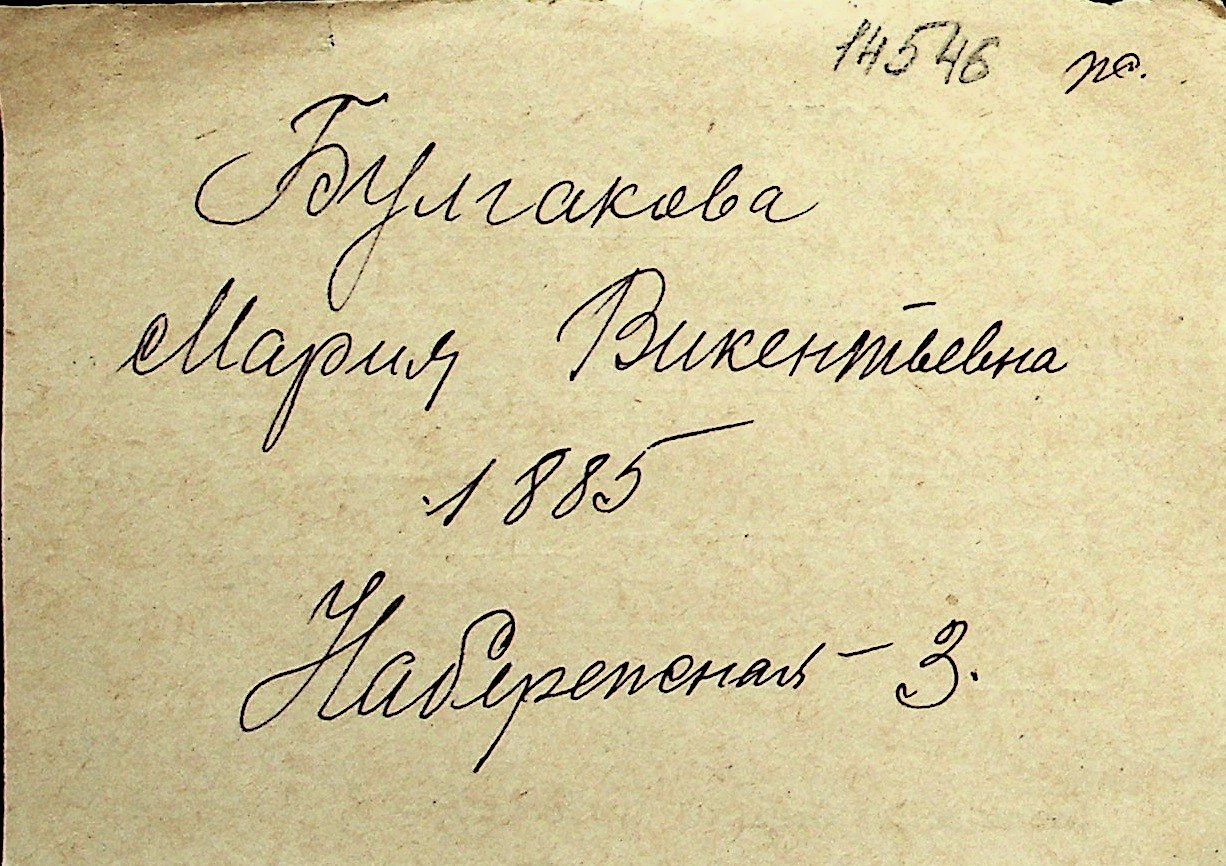 14546
Булгакова
Мария Викентьевна
1885
Набережная – 3.